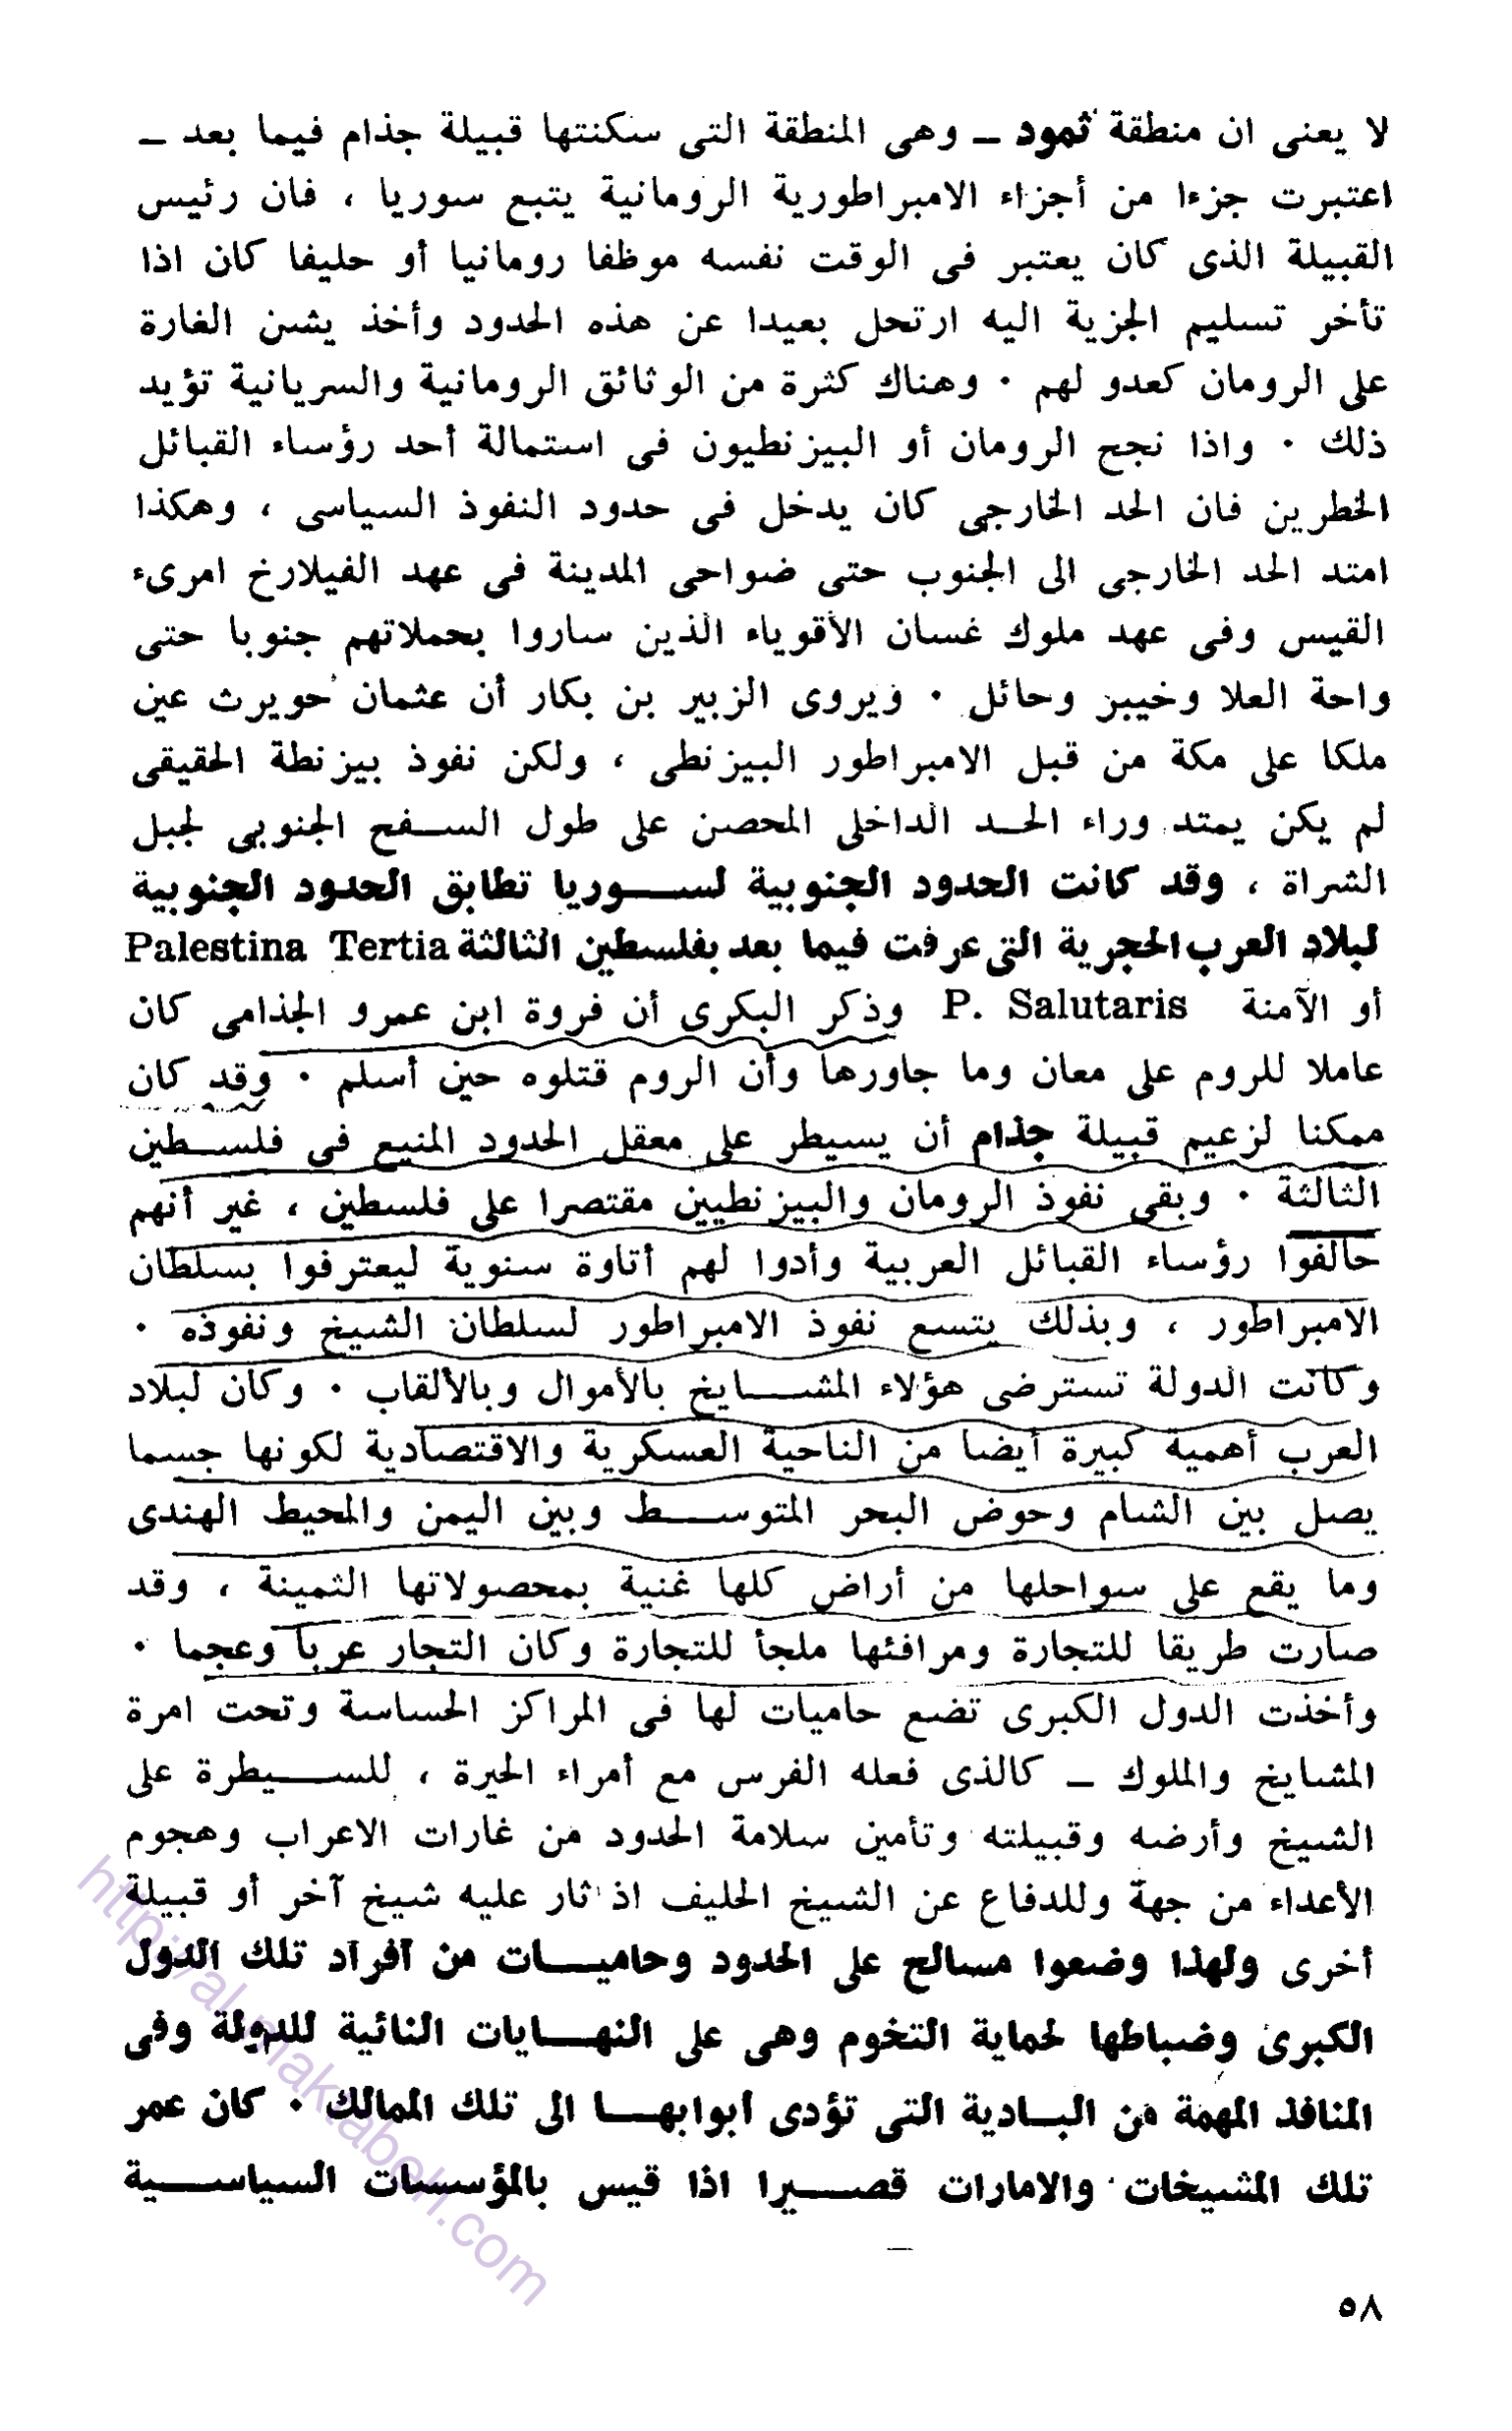 لا يعنى ان منطقة ثمود ــ وهى المنطقة التى سكنتها قبيلة جذام فيما بعد ــ
اعتبرت جزءا من أجزاء الامبراطورية الرومانية يتبع سوريا ، فان رئيس
القبيلة الذى كان يعتبر فى الوقت نفسه موظفا رومانيا أو حليفا كان اذا
تأخر تسليم الجزية اليه ارتحل بعيدا عن هذه الحدود وأخذ يشن الغارة
على الرومان كعدو لهم ٠ وهناك كثرة من الوثائق الرومانية والسريانية تؤيد
ذلك ٠ واذا نجح الرومان أو البيزنطيون فى استمالة أحد رؤساء القبائل
الخطرين فان الحد الخارجى كان يدخل فى حدود النفوذ السياسى ، وهكذا
امتد الحد الخارجى الى الجنوب حتى ضواحى المدينة فى عهد الفيلارخ امرىء
القيس وفى عهد ملوك غسان الأقوياء الذين ساروا بحملاتهم جنوبا حتى
واحة العلا وخيبر وحائل ٠ ويروى الزبير بن بكار أن عثمان حويرث عين
ملكا على مكة من قبل الامبراطور البيزنطى ، ولكن نفوذ بيزنطة الحقيقى
لم يكن يمتد وراء الحـد الداخلى المحصن على طول السـفح الجنوبى لجبل
الشراة ، وقد كانت الحدود الجنوبية لسـوريا تطابق الحدود الجنوبية
لبلاد العرب الحجرية التى عرفت فيما بعد بفلسطين الثالثة Palestina Tertia
أو الآمنة P. Salutaris وذكر البكرى أن فروة ابن عمرو الجذامى كان
عاملا للروم على معان وما جاورها وأن الروم قتلوه حين أسلم ٠ وقد كان
ممكنا لزعيم قبيلة جذام أن يسيطر على معقل الحدود المنيع فى فلسـطين
الثالثة ٠ وبقى نفوذ الرومان والبيزنطيين مقتصرا على فلسطين ، غير أنهم
حالفوا رؤساء القبائل العربية وأدوا لهم أتاوة سنوية ليعترفوا بسلطان
الامبراطور ، وبذلك يتسع نفوذ الامبراطور لسلطان الشيخ ونفوذه ٠
وكانت الدولة تسترضى هؤلاء المشـايخ بالأموال وبالألقاب ٠ وكان لبلاد
العرب أهمية كبيرة أيضا من الناحية العسكرية والاقتصادية لكونها جسما
يصل بين الشام وحوض البحر المتوسـط وبين اليمن والمحيط الهندى
وما يقع على سواحلها من أراض كلها غنية بمحصولاتها الثمينة ، وقد
صارت طريقا للتجارة ومرافئها ملجأ للتجارة وكان التجار عربا وعجما ٠
وأخذت الدول الكبرى تضع حاميات لها فى المراكز الحساسة وتحت امرة
المشايخ والملوك ــ كالذى فعله الفرس مع أمراء الحيرة ، للسـيطرة على
الشيخ وأرضه وقبيلته وتأمين سلامة الحدود من غارات الاعراب وهجوم
الأعداء من جهة وللدفاع عن الشيخ الحليف اذ ثار عليه شيخ آخر أو قبيلة
أخرى ولهذا وضعوا مسالح على الحدود وحاميـات من أفراد تلك الدول
الكبرى وضباطها لحماية التخوم وهى على النهـايات النائية للدولة وفى
المنافذ المهمة من البـادية التى تؤدى أبوابهـا الى تلك الممالك ٠ كان عمر
تلك المشيخات والامارات قصـيرا اذا قيس بالمؤسسات السياسـية
٥٨
http://al-maktabeh.com